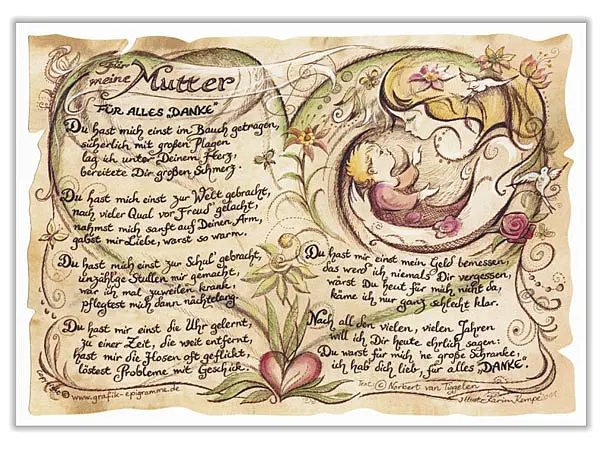 Für
meine Mutter
FÜR ALLES „DANKE“
Du hast mich einst im Bauch getragen,
sicherlich mit großen Plagen
lag ich unter Deinem Herz,
bereitete Dir großen Schmerz.
Du hast mich einst zur Welt gebracht,
nach vieler Qual vor Freud' gelacht,
nahmst mich sanft auf Deinen Arm,
gabst mir Liebe, warst so warm.
Du hast mich einst zur Schul' gebracht,
unzählge Stullen mir gemacht,
war ich mal zuweilen krank,
pflegtest mich dann nächtelang.
Du hast mir einst die Uhr gelernt,
zu einer Zeit, die weit entfernt,
hast mir die Hosen oft geflickt,
löstest Probleme mit Geschick.
Du hast mir einst mein Geld bemessen,
das werd' ich niemals Dir vergessen,
wärst Du heut' für mich nicht da,
käme ich nur ganz schlecht klar.
Nach all den vielen, vielen Jahren
will ich Dir heute ehrlich sagen:
Du warst für mich 'ne große Schranke,
ich hab dich lieb, für alles „DANKE“.
© www.grafik-epigramme.de
Text: © Norbert van Tiggelen
Illustr. Karin Kempe